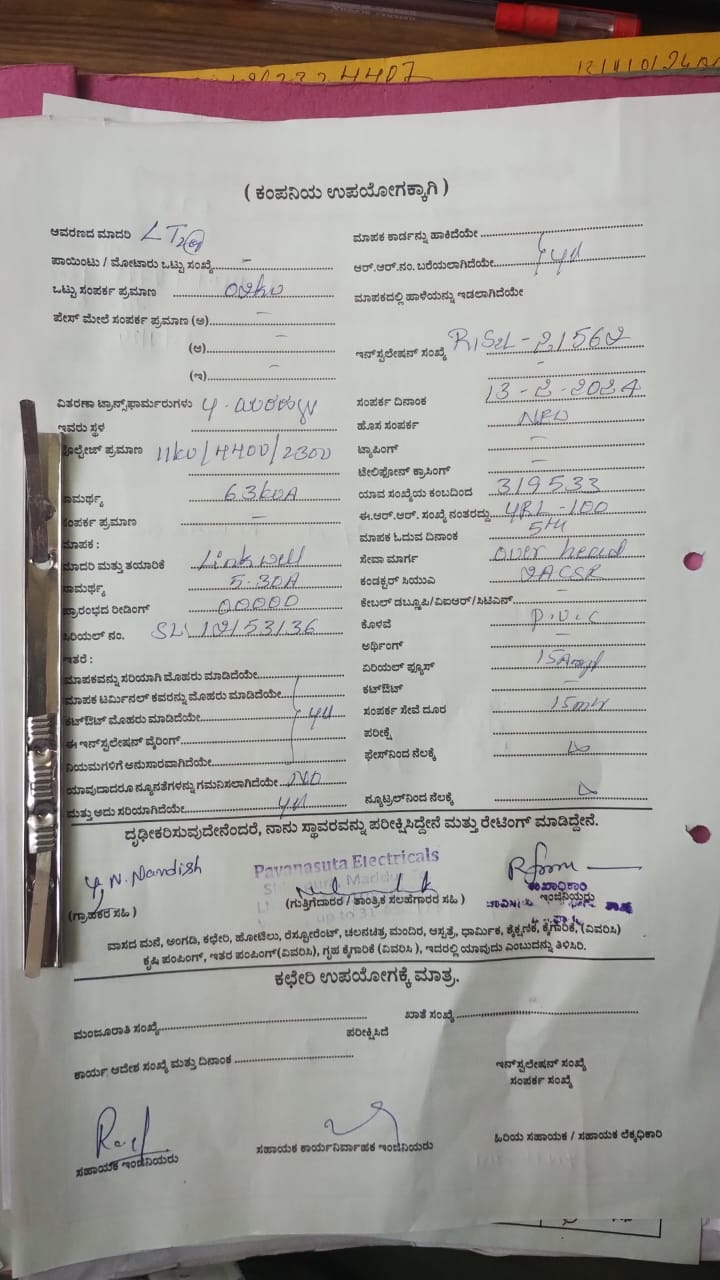 ( ಕಂಪನಿಯ ಉಪಯೋಗಕ್ಕಾಗಿ )
ಆವರಣದ ಮಾದರಿ LT2
ಮಾಪಕ ಕಾರ್ಡನ್ನು ಹಾಕಿದೆಯೇ
ಪಾಯಿಂಟು / ಮೋಟಾರು ಒಟ್ಟು ಸಂಖ್ಯೆ -
ಆರ್.ಆರ್.ನಂ. ಬರೆಯಲಾಗಿದೆಯೇ
ಒಟ್ಟು ಸಂಪರ್ಕ ಪ್ರಮಾಣ
ಮಾಪಕದಲ್ಲಿ ಹಾಳೆಯನ್ನು ಇಡಲಾಗಿದೆಯೇ
ಪೇಸ್ ಮೇಲೆ ಸಂಪರ್ಕ ಪ್ರಮಾಣ (ಅ) -
(ಆ) -
ಇನ್‌ಸ್ಟಲೇಷನ್ ಸಂಖ್ಯೆ
(ಇ) -
ವಿತರಣಾ ಟ್ರಾನ್ಸ್‌ಫಾರ್ಮರುಗಳು
ಸಂಪರ್ಕ ದಿನಾಂಕ 13-2-2024
ಇವರು ಸ್ಥಳ
ಹೊಸ ಸಂಪರ್ಕ
ವೋಲ್ಟೇಜ್ ಪ್ರಮಾಣ 11kv/4400/2300
ಟ್ಯಾಪಿಂಗ್ -
ಟೆಲಿಫೋನ್ ಕ್ರಾಸಿಂಗ್ -
ಸಾಮರ್ಥ್ಯ 63kVA
ಯಾವ ಸಂಖ್ಯೆಯ ಕಂಬದಿಂದ 319533
ಸಂಪರ್ಕ ಪ್ರಮಾಣ -
ಈ.ಆರ್.ಆರ್. ಸಂಖ್ಯೆ ನಂತರದ್ದು YRL-100
ಮಾಪಕ :
ಮಾಪಕ ಓದುವ ದಿನಾಂಕ 5th
ಮಾದರಿ ಮತ್ತು ತಯಾರಿಕೆ Linkwell
ಸೇವಾ ಮಾರ್ಗ over head
ಸಾಮರ್ಥ್ಯ 5-30A
ಕಂಡಕ್ಟರ್ ಸಿಯುಎ 2ACSR
ಪ್ರಾರಂಭದ ರೀಡಿಂಗ್ 00000
ಕೇಬಲ್ ಡಬ್ಲೂಪಿ/ವಿಐಆರ್/ಸಿಟಿಎನ್ -
ಸಿರಿಯಲ್ ನಂ.
ಕೊಳವೆ P.V.C
ಇತರೆ :
ಅರ್ಥಿಂಗ್ -
ಮಾಪಕವನ್ನು ಸರಿಯಾಗಿ ಮೊಹರು ಮಾಡಿದೆಯೇ
ಏರಿಯಲ್ ಫ್ಯೂಸ್
ಮಾಪಕ ಟರ್ಮಿನಲ್ ಕವರನ್ನು ಮೊಹರು ಮಾಡಿದೆಯೇ
ಕಟ್‌ಔಟ್
ಕಟ್‌ಔಟ್ ಮೊಹರು ಮಾಡಿದೆಯೇ
ಸಂಪರ್ಕ ಸೇವೆ ದೂರ 15mtr
ಈ ಇನ್‌ಸ್ಟಲೇಷನ್ ವೈರಿಂಗ್
ಪರೀಕ್ಷೆ
ನಿಯಮಗಳಿಗೆ ಅನುಸಾರವಾಗಿದೆಯೇ
ಫೇಸ್‌ನಿಂದ ನೆಲಕ್ಕೆ
ಯಾವುದಾದರೂ ನ್ಯೂನತೆಗಳನ್ನು ಗಮನಿಸಲಾಗಿದೆಯೇ NO
ಮತ್ತು ಅದು ಸರಿಯಾಗಿದೆಯೇ
ನ್ಯೂಟ್ರಲ್‌ನಿಂದ ನೆಲಕ್ಕೆ
ದೃಢೀಕರಿಸುವುದೇನೆಂದರೆ, ನಾನು ಸ್ಥಾವರವನ್ನು ಪರೀಕ್ಷಿಸಿದ್ದೇನೆ ಮತ್ತು ರೇಟಿಂಗ್ ಮಾಡಿದ್ದೇನೆ.
Y.N. Nandish
Pavanasuta Electricals
(ಗ್ರಾಹಕರ ಸಹಿ )
(ಗುತ್ತಿಗೆದಾರರ / ತಾಂತ್ರಿಕ ಸಲಹೆಗಾರರ ಸಹಿ )
ಇಂಜಿನಿಯರು
ವಾಸದ ಮನೆ, ಅಂಗಡಿ, ಕಛೇರಿ, ಹೋಟೆಲು, ರೆಸ್ಟೋರೆಂಟ್, ಚಲನಚಿತ್ರ ಮಂದಿರ, ಆಸ್ಪತ್ರೆ, ಧಾರ್ಮಿಕ, ಶೈಕ್ಷಣಿಕ, ಕೈಗಾರಿಕೆ, (ವಿವರಿಸಿ)
ಕೃಷಿ ಪಂಪಿಂಗ್, ಇತರ ಪಂಪಿಂಗ್(ವಿವರಿಸಿ), ಗೃಹ ಕೈಗಾರಿಕೆ (ವಿವರಿಸಿ ), ಇದರಲ್ಲಿ ಯಾವುದು ಎಂಬುದನ್ನು ತಿಳಿಸಿರಿ.
ಕಛೇರಿ ಉಪಯೋಗಕ್ಕೆ ಮಾತ್ರ.
ಮಂಜೂರಾತಿ ಸಂಖ್ಯೆ
ಖಾತೆ ಸಂಖ್ಯೆ
ಪರೀಕ್ಷಿಸಿದೆ
ಕಾರ್ಯ ಆದೇಶ ಸಂಖ್ಯೆ ಮತ್ತು ದಿನಾಂಕ
ಇನ್‌ಸ್ಟಲೇಷನ್ ಸಂಖ್ಯೆ
ಸಂಪರ್ಕ ಸಂಖ್ಯೆ
ಸಹಾಯಕ ಇಂಜಿನಿಯರು
ಸಹಾಯಕ ಕಾರ್ಯನಿರ್ವಾಹಕ ಇಂಜಿನಿಯರು
ಹಿರಿಯ ಸಹಾಯಕ / ಸಹಾಯಕ ಲೆಕ್ಕಧಿಕಾರಿ